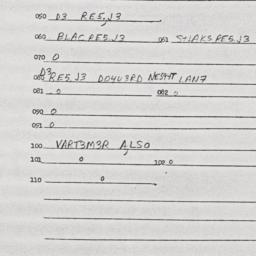 050 D3 RE5,J3
060 BLACRE5.J3 061 SHAKSRE5.J3
070 0
080 D3RE5.J3 DO4U3RD NESHT LAN7
081 0 082 0
090 0
091 0
100 VART3M3R ALSO
101 0 102 0
110 0